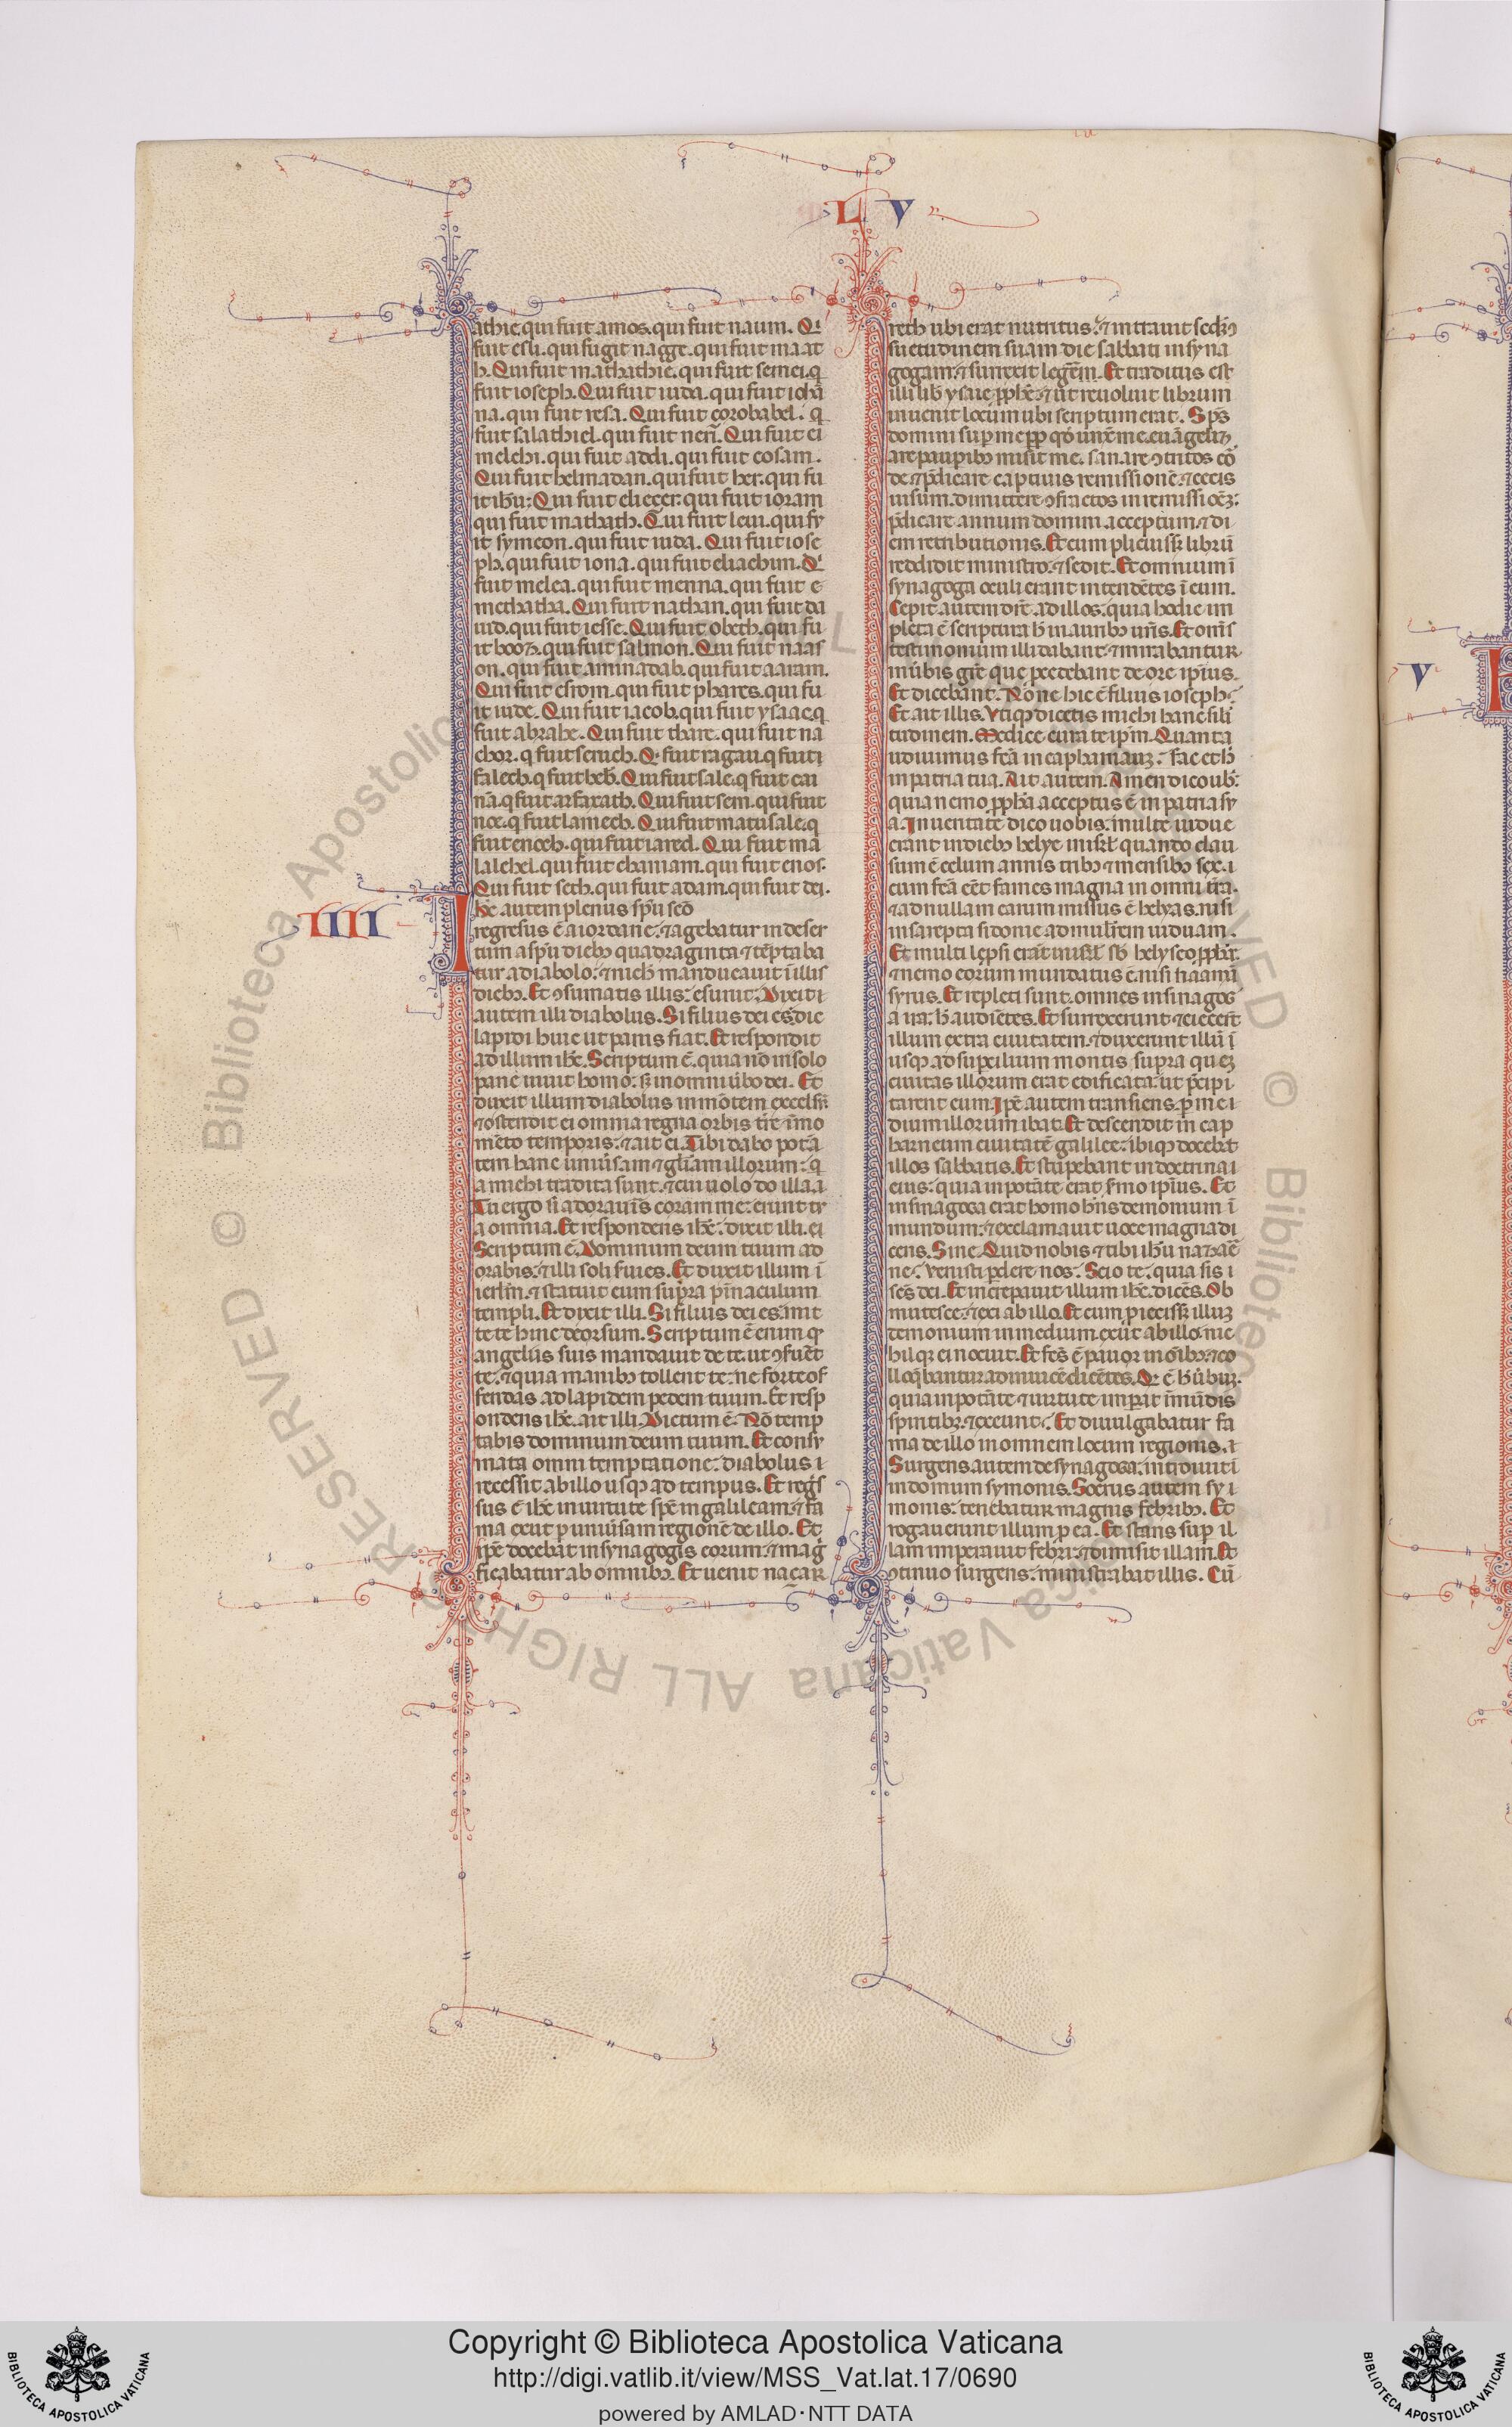 L V
athie. qui fuit amos. qui fuit naum. Qi
fuit esli. qui fugit nagge. qui fuit maat
h. Qui fuit mathathie. qui fuit semei. q
fuit ioseph. Qui fuit iuda. qui fuit iohā
na. qui fuit resa. Qui fuit çorobabel. q
fuit salathiel. qui fuit neri. Qui fuit ei
melchi. qui fuit addi. qui fuit cosam.
Qui fuit helmadan. qui fuit her. qui fu
it ihū. Qui fuit elieçer. qui fuit ioram
qui fuit mathath. Qui fuit leui. qui fu
it symeon. qui fuit iuda. Qui fuit iose
ph. qui fuit iona. qui fuit eliachim. Qi
fuit melea. qui fuit menna. qui fuit e
methatha. Qui fuit nathan. qui fuit da
uid. qui fuit iesse. Qui fuit obeth. qui fu
it booz. qui fuit salmon. Qui fuit naas
on. qui fuit aminadab. qui fuit aaram.
Qui fuit esrom. qui fuit phares. qui fu
it iude. Qui fuit iacob. qui fuit ysaac. q
fuit abrahe. Qui fuit thare. qui fuit na
chor. q fuit seruch. Qi fuit ragau. q fuit i
falech. q fuit heb. Qui fuit sale. q fuit cai
nā. q fuit arfaxath. Qui fuit sem. qui fuit
noe. q fuit lamech. Qui fuit matusale. q
fuit enoch. qui fuit iared. Qui fuit ma
lalehel. qui fuit chaniam. qui fuit enos.
Qui fuit seth. qui fuit adam. qui fuit dei.
IIII
Ihc autem plenus spū scō
regresus ē a iordane. et agebatur in deser
tum a spū diebȝ quadraginta et tēptaba
tur a diabolo. et nich manducauit ī illis
diebȝ. Et ꝯsumatis illis. esuriit. Dixit i
autem illi diabolus. Si filius dei es. dic
lapidi huic ut panis fiat. Et respondit
ad illum ihc. Scriptum ē. quia nō in solo
pane uiuit homo. sȝ in omni ūbo dei. Et
duxit illum diabolus in mōtem excelsū
et ostendit ei omnia regna orbis tīre ī mo
mēto temporis. et ait ei. Tibi dabo potā
tem hanc uniūsam et gliam illorum. q
a michi tradita sunt. et cui uolo do illa. i
Tu ergo si adoraūis coram me. erunt tu
a omnia. Et respondens ihc. dixit illi. ei
Scriptum ē. Dominum deum tuum ad
orabis. et illi soli suies. Et duxit illum ī
ierlm. et statuit eum supra pinnaculum
templi. Et dixit illi. Si filius dei es. mit
te te hinc deorsum. Scriptum ē enim qȝ
angelis suis mandauit de te. ut ꝯsuēt
te. et quia manibȝ tollent te. ne forte of
fendas ad lapidem pedem tuum. Et resp
ondens ihc. ait illi. Dictum ē. Nō temp
tabis dominum deum tuum. Et consu
mata omni temptatione. diabolus i
recessit ab illo usqȝ ad tempus. Et regs
sus ē ihc in uirtute spc in galileam. et fa
ma exiit p uniūsam regionē de illo. Et
ipē docebat in synagogis eorum. et mag
ficabatur ab omnibȝ. Et uenit naçar
reth ubi erat nutritus. et intrauit sedȝ
suetudinem suam die sabbati in syna
gogam. et surrexit legēm. Et traditus est
illi lib ysaie pphē. et ut reuoluit librum
inuenit locum ubi scriptum erat. Spc
domini sup me pp qđ unxē me. euāgeliz
are paupibȝ misit me. sanare ꝯtritos cō
de et pdicare captiuis remissionē. et cecis
uisum. dimittere ꝯfractos in remissioēz.
pdicare annum domini acceptum. et di
em retributionis. Et cum plicuissȝ librū
reddidit ministro. et sedit. Et omnium ī
synagoga oculi erant intendētes ī eum.
Cepit autem dīre ad illos. quia hodie im
pleta ē scriptura h in auribȝ uris. Et oms
testimonium illi dabant. et mirabantur
in ūbis grē que pcedebant de ore ipīus.
Et dicebant. Nōne hic ē filius ioseph.
Et ait illis. Vtiqȝ dicetis michi hanc sili
tudinem. Medice cura te ipm. Quanta
udiuimus fcā in capharnaū. fac et h
in patria tua. Ait autem. Amen dico uob.
quia nemo pphā acceptus ē in patria su
a. In ueritate dico uobis. multe uidue
erant in diebȝ helye in isrl quando clau
sum ē celum annis tribȝ et mensibȝ sex. i
cum fcā eēt fames magna in omni tīra.
et ad nullam earum missus ē helyas. nisi
in sarepta sidonie ad mulīrem uiduam.
Et multi lepsi erāt in isrl sb helyseo pphā.
et nemo eorum mundatus ē. nisi naamā
syrus. Et repleti sunt. omnes in sinagog
a ira. h audiētes. Et surrexerunt et eiecerūt
illum extra ciuitatem. et duxerunt illū ī
usqȝ ad supcilium montis supra quez
ciuitas illorum erat edificata. ut pcipi
tarent eum. Ipē autem transiens p me i
dium illorum ibat. Et descendit in cap
harneum ciuitatē galilee. ibiqȝ docebat
illos sabbatis. Et stupebant in doctrina i
eius. quia in potāte erat smo ipīus. Et
in sinagoga erat homo hns demonium ī
mundum. et exclamauit uoce magna di
cens. Sine. Quid nobis et tibi ihū naçarē
ne. venisti pdere nos. Scio te. quia sis i
ses dei. Et increpauit illum ihc. dicēs. Ob
mutesce. et exi ab illo. Et cum piecissȝ illuz
demonium in medium. exiit ab illo. nic
hilqȝ ei nocuit. Et fcs ē pauor in oībȝ. et co
lloqbantur ad inuicē dicētes. Qi ē h ūbuz.
quia in potāte et uirtute impat īmūdis
spiritibȝ. et exeunt. Et diuulgabatur fa
ma de illo in omnem locum regionis. i
Surgens autem de synagoga. introiuit ī
in domum symonis. Socrus autem sy i
monis. tenebatur magnis febribȝ. Et
rogauerunt illum p ea. Et stans sup il
lam imperauit febri. et dimisit illam. Et
ꝯtinuo surgens. ministrabat illis. Cū
V
© Biblioteca Apostolica Vaticana ALL RIGHTS RESERVED
Copyright © Biblioteca Apostolica Vaticana
http://digi.vatlib.it/view/MSS_Vat.lat.17/0690
powered by AMLAD·NTT DATA
BIBLIOTECA APOSTOLICA VATICANA
BIBLIOTECA APOSTOLICA VATICANA